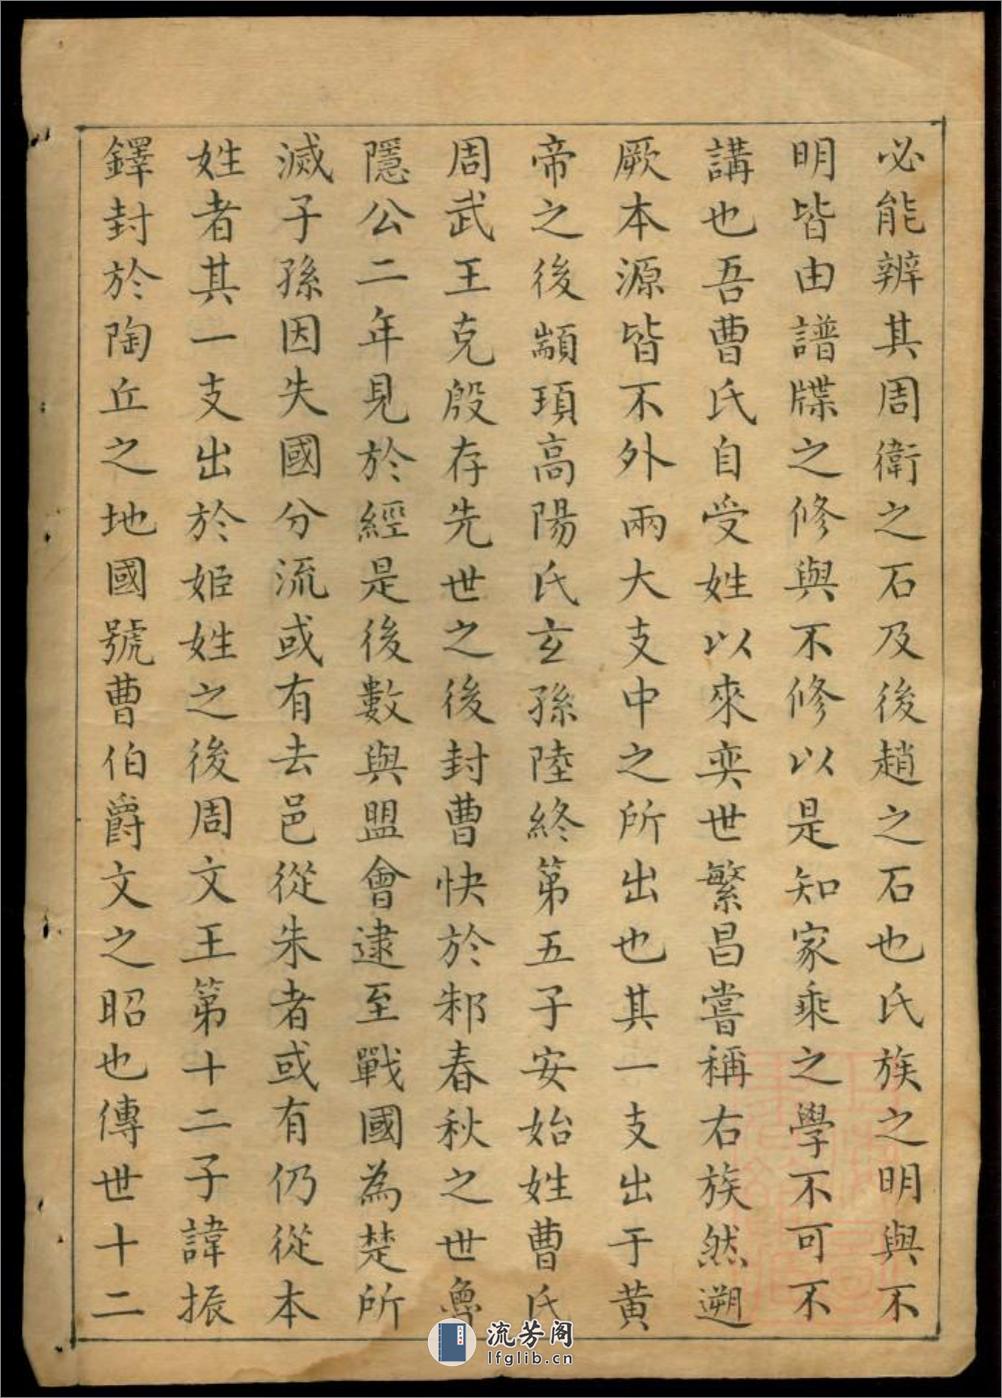 必能辨其周衛之石及後趙之石也氏族之明與不
明皆由譜牒之修與不修以是知家乘之學不可不
講也吾曹氏自受姓以來奕世繁昌嘗稱右族然遡
厥本源皆不外兩大支中之所出也其一支出于黃
帝之後顓頊高陽氏玄孫陸終第五子安始姓曹氏
周武王克殷存先世之後封曹快於邾春秋之世魯
隱公二年見於經是後數與盟會逮至戰國為楚所
滅子孫因失國分流或有去邑從朱者或有仍從本
姓者其一支出於姬姓之後周文王第十二子諱振
鐸封於陶丘之地國號曹伯爵文之昭也傳世十二
流芳阁
lfglib.cn